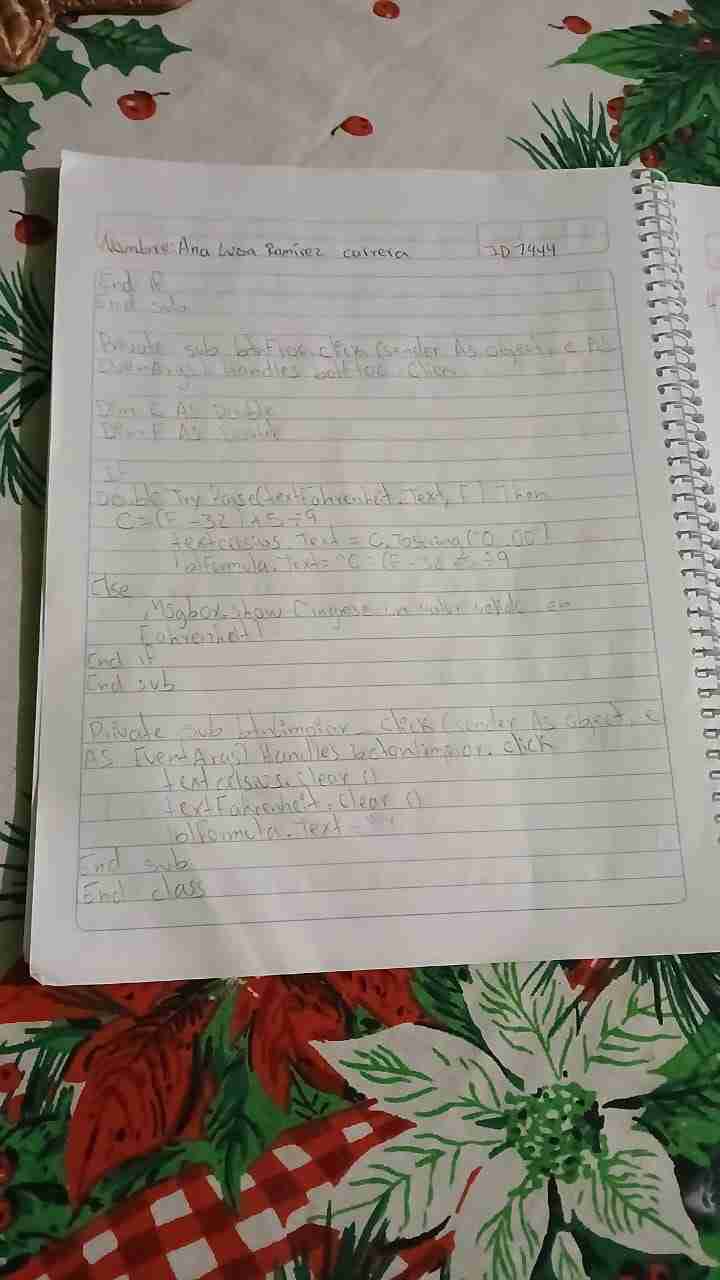 Nombre: Ana Luisa Ramírez carrera JD 7444
End if
End sub
Private sub btnFtoc_click (sender As object, e As
EventArgs) Handles
Dim C As Double
Dim F As Double
If
Double.TryParse(textFahrenheit.Text, F) Then
C=(F -32)*5 ÷9
textcelsius.Text = C.Tostring("0.00")
lblFormula.Text= "C=(F -32
Else
Msgbox.show ("ingrese un valor valido en
Fahrenheit)
End if
End sub
Private sub btnlimpiar_click (sender As object, e
AS EventArgs) Handles botonlimpiar.click
textcelsius.Clear ()
textFahrenheit.Clear ()
lblFormula.Text = " "
End sub
End class